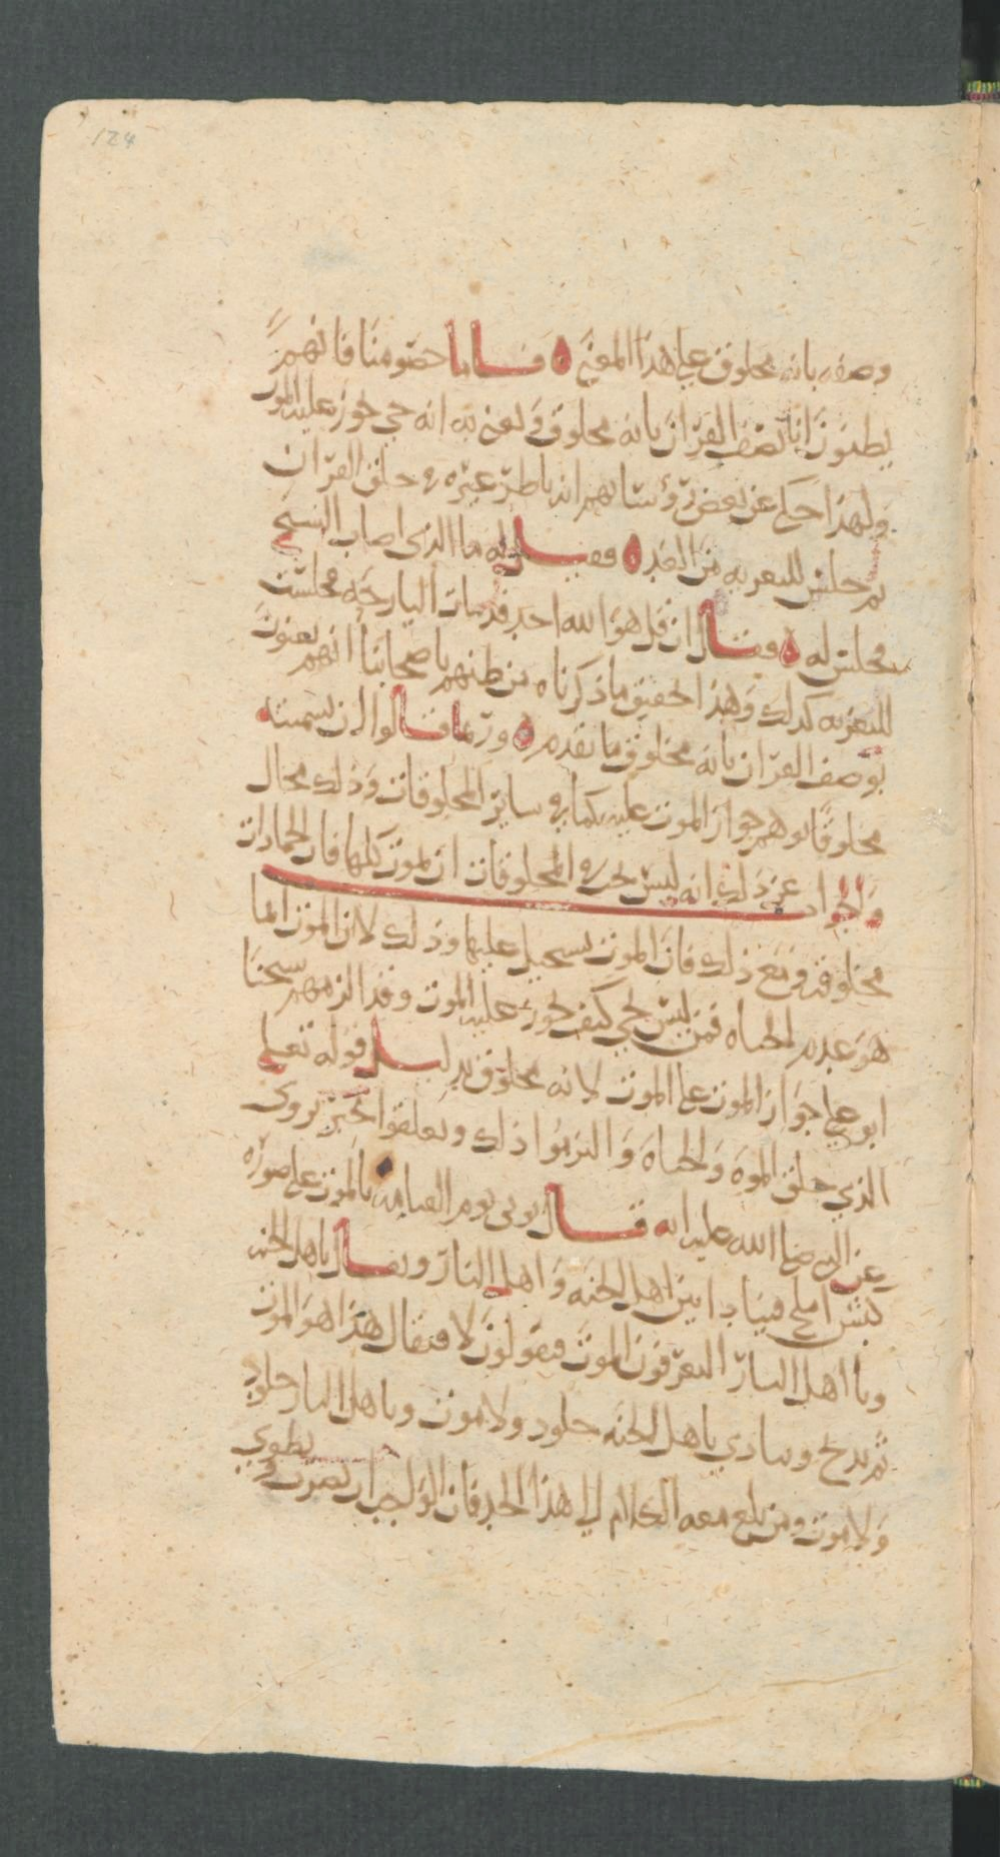 124
وصفه بانه مخلوق على هذا المعنى ه فاما خصومنا فانهم
يظنون انا نصف القران بانه مخلوق ونعني به انه حي يجوز عليه الموت
ولهذا حكي عن بعض رؤسائهم انه ناظر غيره في خلق القران
ثم جلس للتعزيه من الغد ه فقيل له ما الذي اصاب الشيخ
مجلس له ه فقال ان قل هو الله احد قد مات البارحه فجلست
للتعزيه كذلك وهذا تحقيق ما ذكرناه من ظنهم باصحابنا انهم يعنون
بوصف القران بانه مخلوق ما تقدم ه وربما قالوا ان تسميته
مخلوقا توهم جواز الموت عليه كما في سائر المخلوقات وذلك محال
والجواب عن ذلك انه ليس يجب في المخلوقات ان تموت كلها فان الجمادات
مخلوقه ومع ذلك فان الموت يستحيل عليها وذلك لان الموت انما
هو عدم الحياه فمن ليس بحي كيف يجوز عليه الموت وقد الزمهم شيخنا
ابو علي جواز الموت على الموت لانه مخلوق بدليل قوله تعالى
الذي خلق الموت والحياه والتزموا ذلك وتعلقوا بخبر يروى
عن النبي صلى الله عليه انه قال يوتى يوم القيامه بالموت على صوره
كبش املح فينادا بين اهل الجنه واهل النار ويقال يا اهل الجنه
ويا اهل النار اتعرفون الموت فيقولون لا فيقال هذا هو الموت
ثم يذبح وينادي يا اهل الجنه خلود ولا موت ويا اهل النار خلود
ولا موت ومن بلغ معه الكلام الى هذا الحد فان الواجب ان يضرب و
يطوى